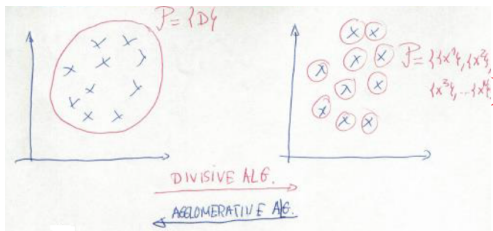 P = {D}
P = {{x¹},{x²},
{x³},...{xᴺ}}
DIVISIVE ALG.
AGGLOMERATIVE ALG.